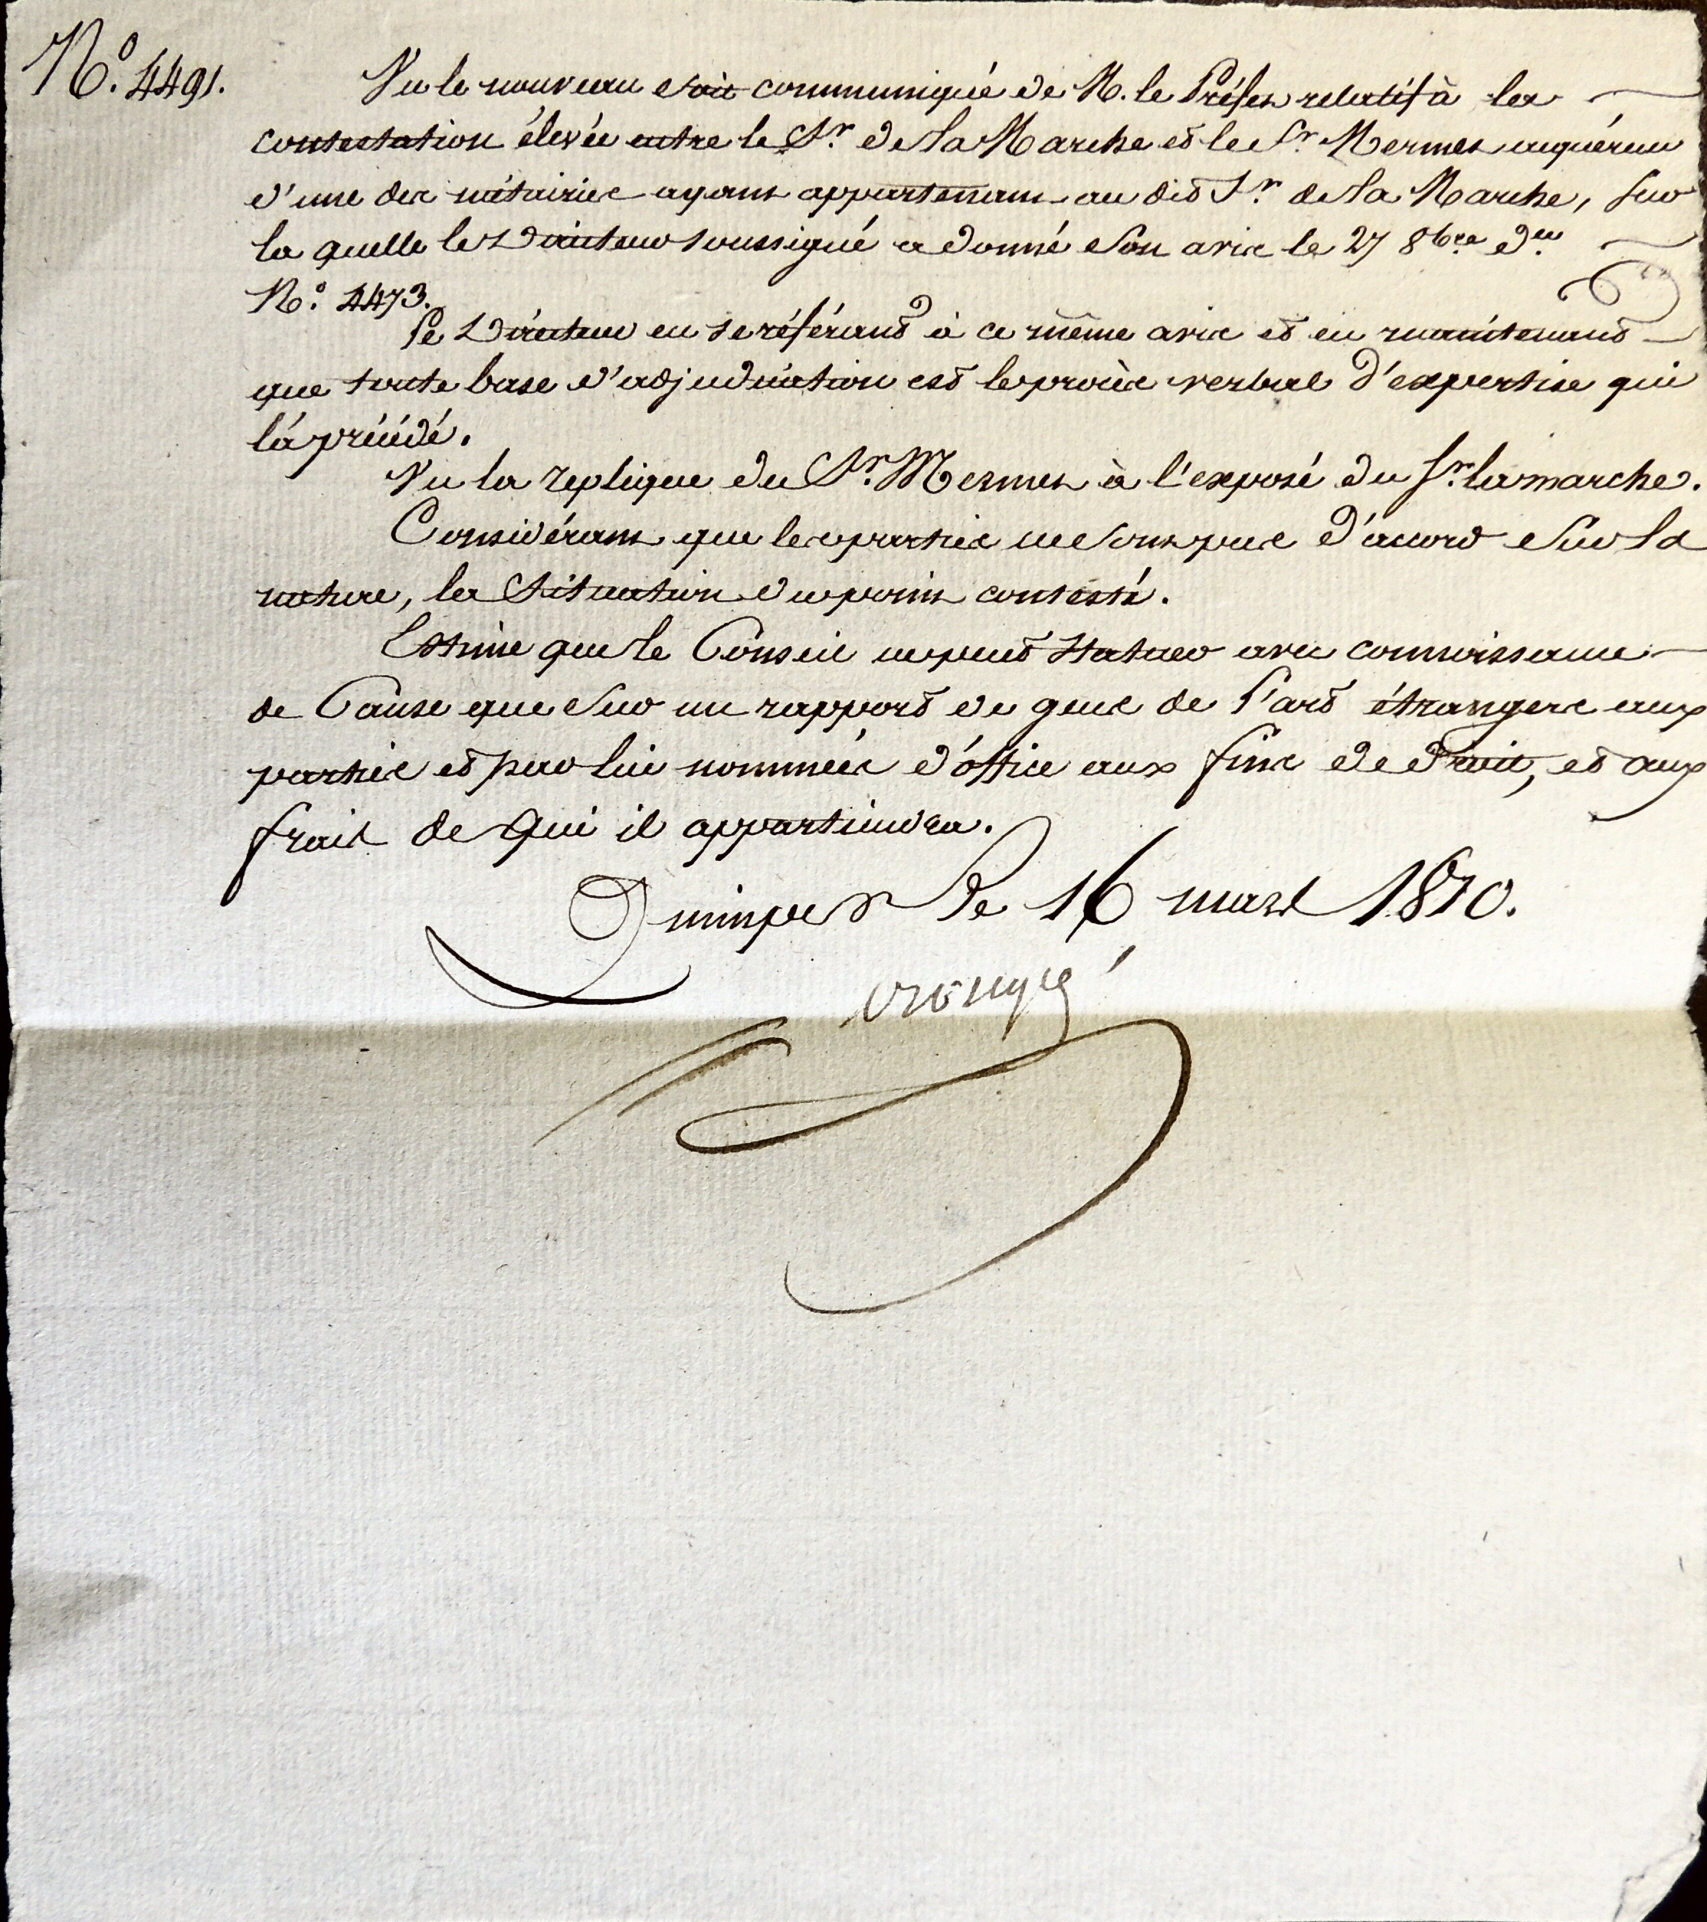 N.º 4491.
Vu le nouveau soit communiqué de M. le Préfet relatif à la
contestation élevée entre le Sr. de la Marche et le Sr. Mermet acquéreur
d'une des métairies ayant appartenant au dit Sr. de la Marche, sur
la quelle le Directeur soussigné a donné son avis le 27 8bre der
N.º 4473.
Le Directeur en se référant à ce même avis et en maintenant
que toute base d'adjudication est le procès verbal d'expertise qui
l'á précédé.
Vu la replique du Sr. Mermet à l'exposé du Sr. lamarche.
Considérant que les parties ne sont pas d'accord sur la
nature, la situation du point contesté.
Estime que le Conseil ne peut statuer avec connoissance
de Cause que sur un rapport de gens de l'art étrangers aux
parties et par lui nommées d'office aux fins de droit, et aux
frais de qui il appartiendra.
Quimper le 16 mars 1810.